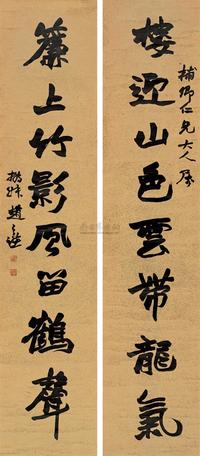 補卿仁兄大人屬
樓迎山色雲帶龍氣
簾上竹影風留鶴聲
撝叔趙之謙